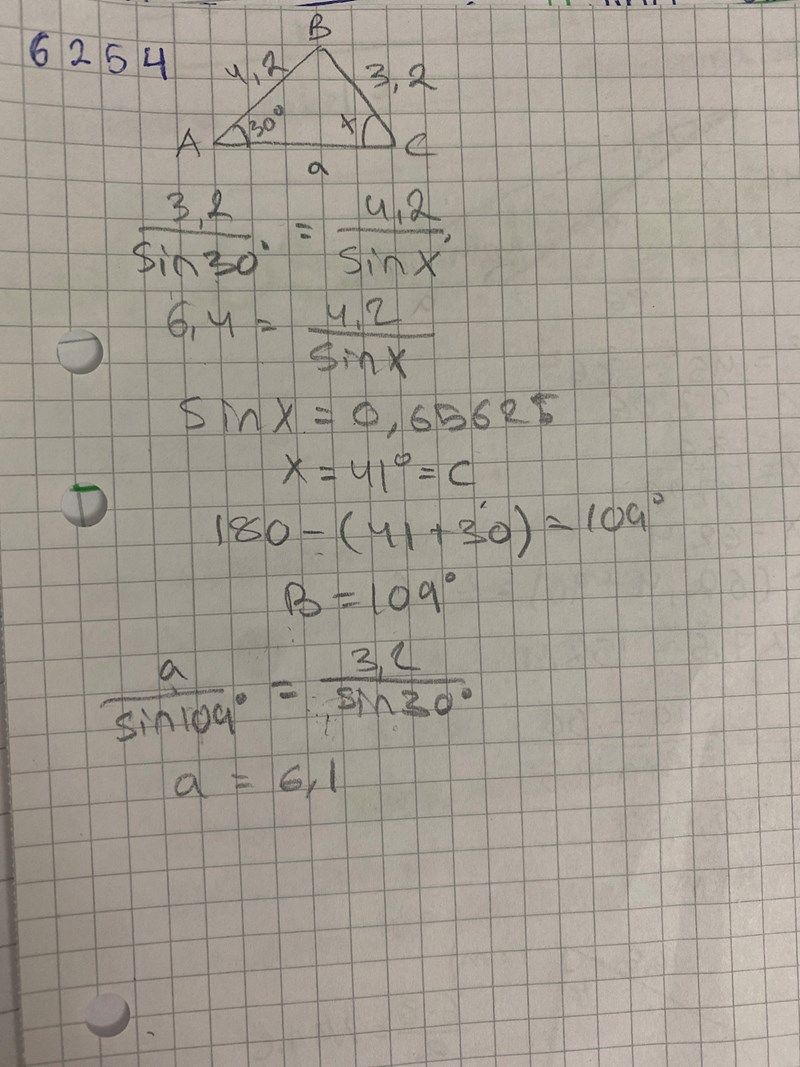 6254
B
4,2 3,2
A 30° x C
a
3,2/sin30° = 4,2/sinx
6,4 = 4,2/sinx
sinx = 0,65625
x = 41° = C
180 - (41 + 30) = 109°
B = 109°
a/sin109° = 3,2/sin30°
a = 6,1